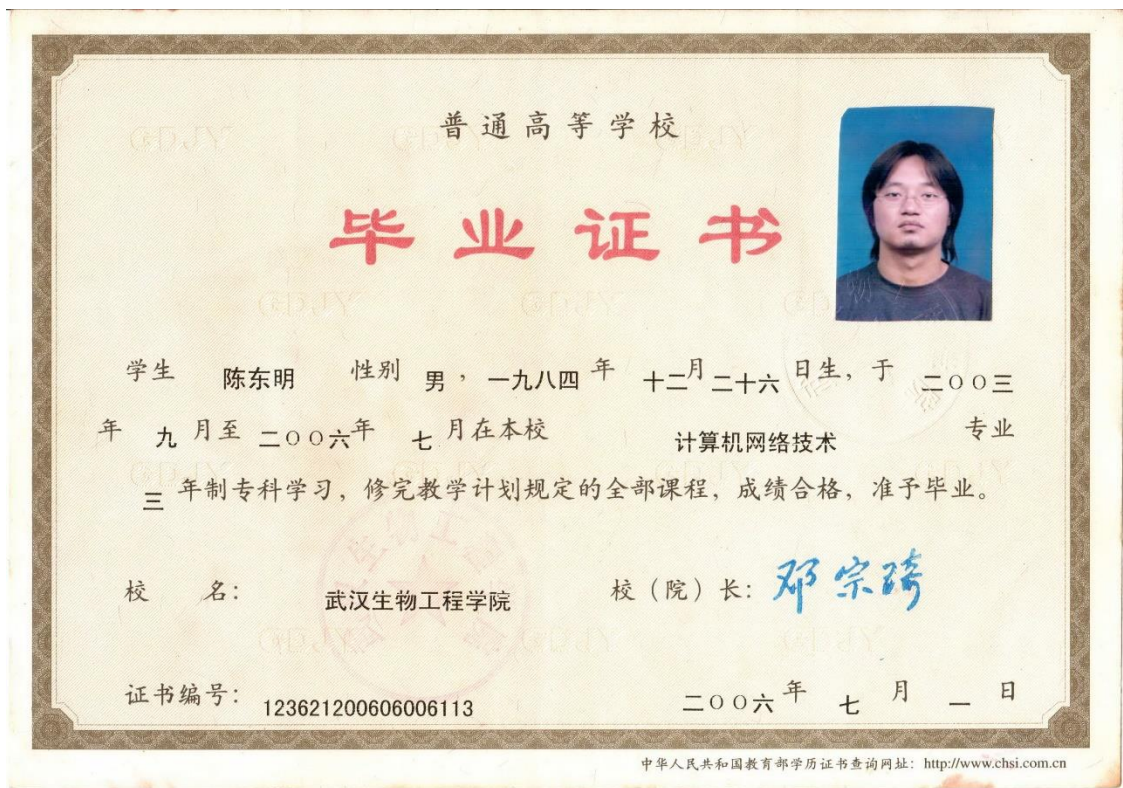 普通高等学校
毕业证书
学生 陈东明 性别 男，一九八四 年 十二月 二十六 日生，于 二〇〇三
年 九 月至 二〇〇六年 七 月在本校 计算机网络技术 专业
三 年制专科学习，修完教学计划规定的全部课程，成绩合格，准予毕业。
校 名： 武汉生物工程学院 校（院）长：邓宗琦
证书编号： 123621200606006113 二〇〇六 年 七 月 一 日
中华人民共和国教育部学历证书查询网址：http://www.chsi.com.cn